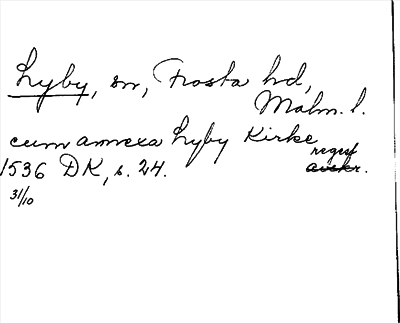 Lyby, sn, Frosta hd,
Malm. l.
cum annexa Lyby Kirke
regist
1536 DK, s. 24. avskr.
31/10